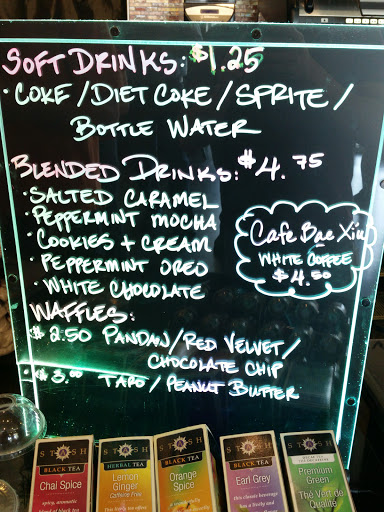 SOFT DRINKS: $1.25
• COKE / DIET COKE / SPRITE /
BOTTLE WATER
BLENDED DRINKS: $4.75
• SALTED CARAMEL
• PEPPERMINT MOCHA
• COOKIES + CREAM
• PEPPERMINT OREO
• WHITE CHOCOLATE
Cafe Bae Xiu
WHITE COFFEE
$4.50
WAFFLES:
$2.50 PANDAN / RED VELVET /
CHOCOLATE CHIP
$3.00 TARO / PEANUT BUTTER
STASH
BLACK TEA
Chai Spice
spicy, aromatic
STASH
HERBAL TEA
Lemon
Ginger
Caffeine Free
STASH
BLACK TEA
Orange
Spice
STASH
BLACK TEA
Earl Grey
this classic beverage
has a lively and
STASH
Premium
Green
Thé Vert de
Qualité